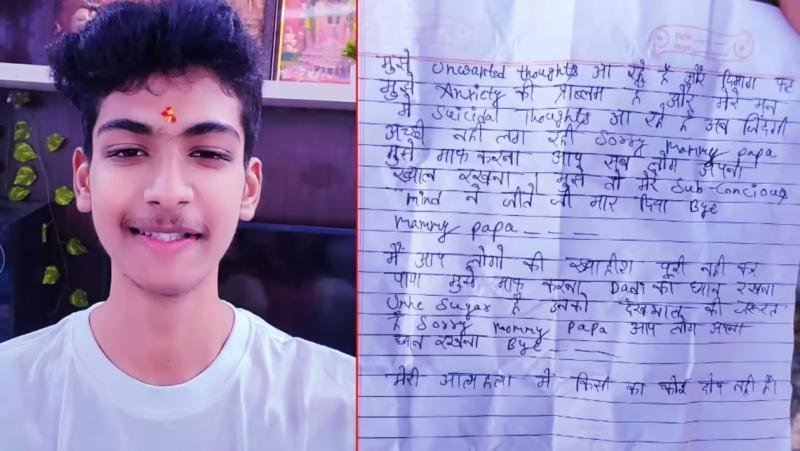 मुझे Unwanted thoughts आ रहे है और दिमाग पर
मुझे Anxiety की प्राब्लम है और मेरे मन
मे Suicidal thoughts आ रहे है अब जिंदगी
अच्छी नही लग रही Sorry mommy papa
मुझे माफ करना आप सब लोग अपना
ख्याल रखना। मुझे तो मेरे Sub-Concious
mind ने जीते जी मार दिया Bye
mammy papa - - - -
मैं आप लोगो की ख्वाहीश पूरी नही कर
पाया मुझे माफ करना Dadi का ध्यान रखना
Unke Sugar है उनको देखभाल की जरूरत
है Sorry mommy papa आप लोग अपना
ध्यान रखना Bye - - - -
मेरी आत्महत्या में किसी का कोई दोष नही है।